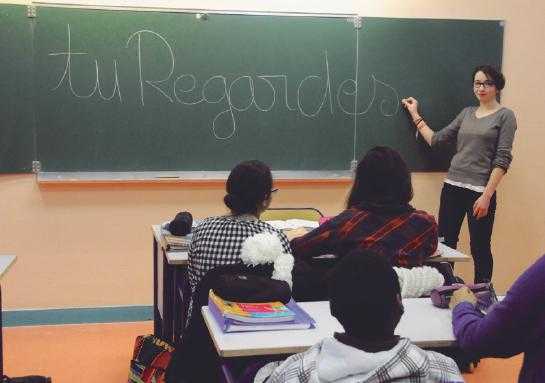 tu Regardes